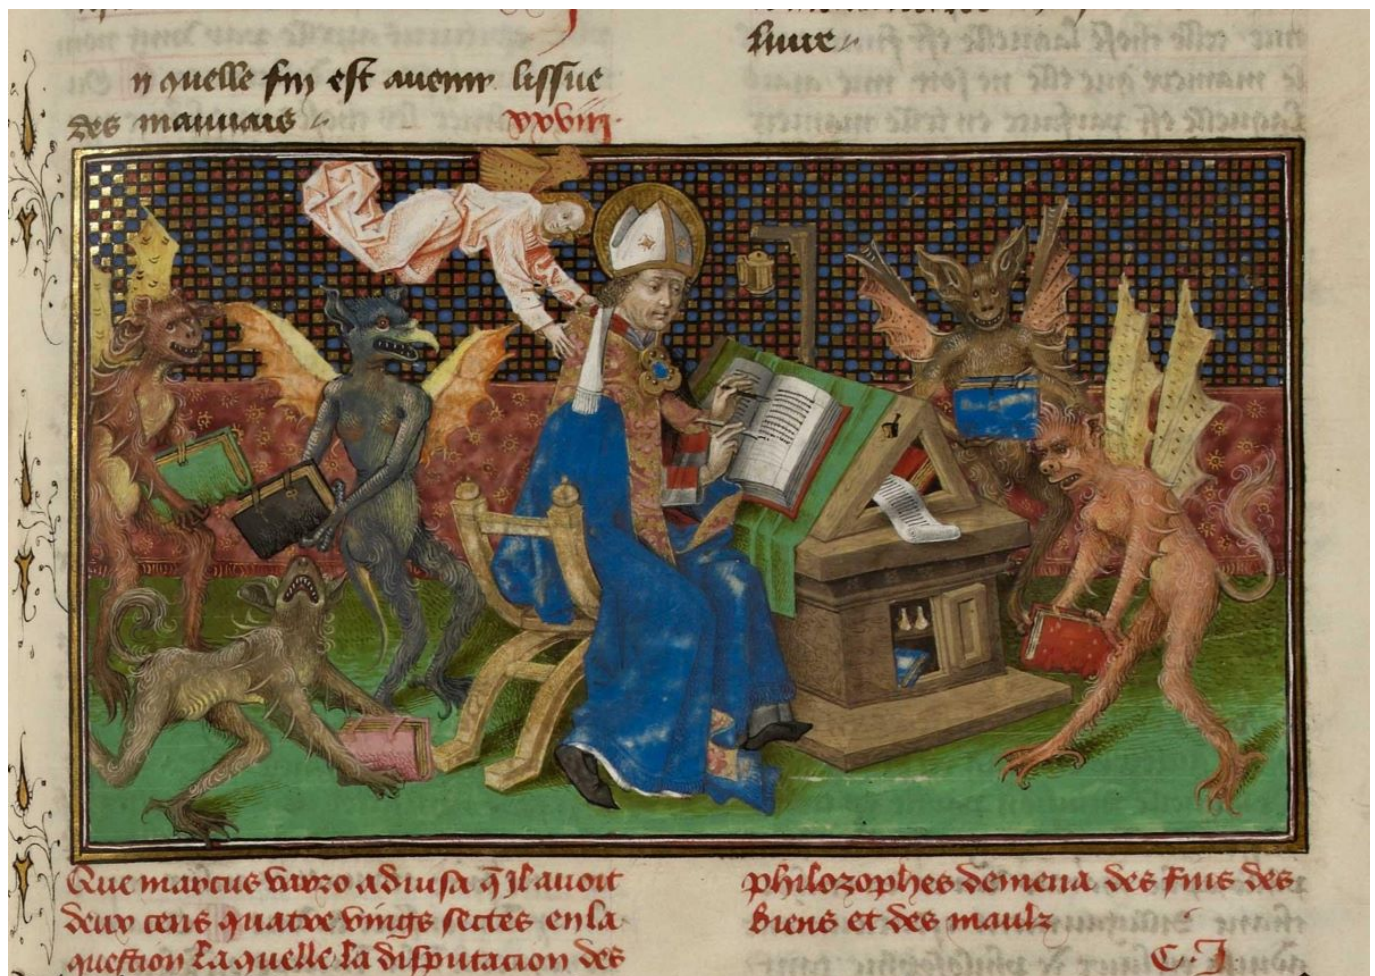 n quelle fin est auenir lissue
des mauuais
xxviij.
liure
Que marcus varro aduisa q̃ Jl auoit
deux cens quatre vings sectes en la
question La quelle la disputacion des
philozophes demena des fins des
biens et des maulz
C. J